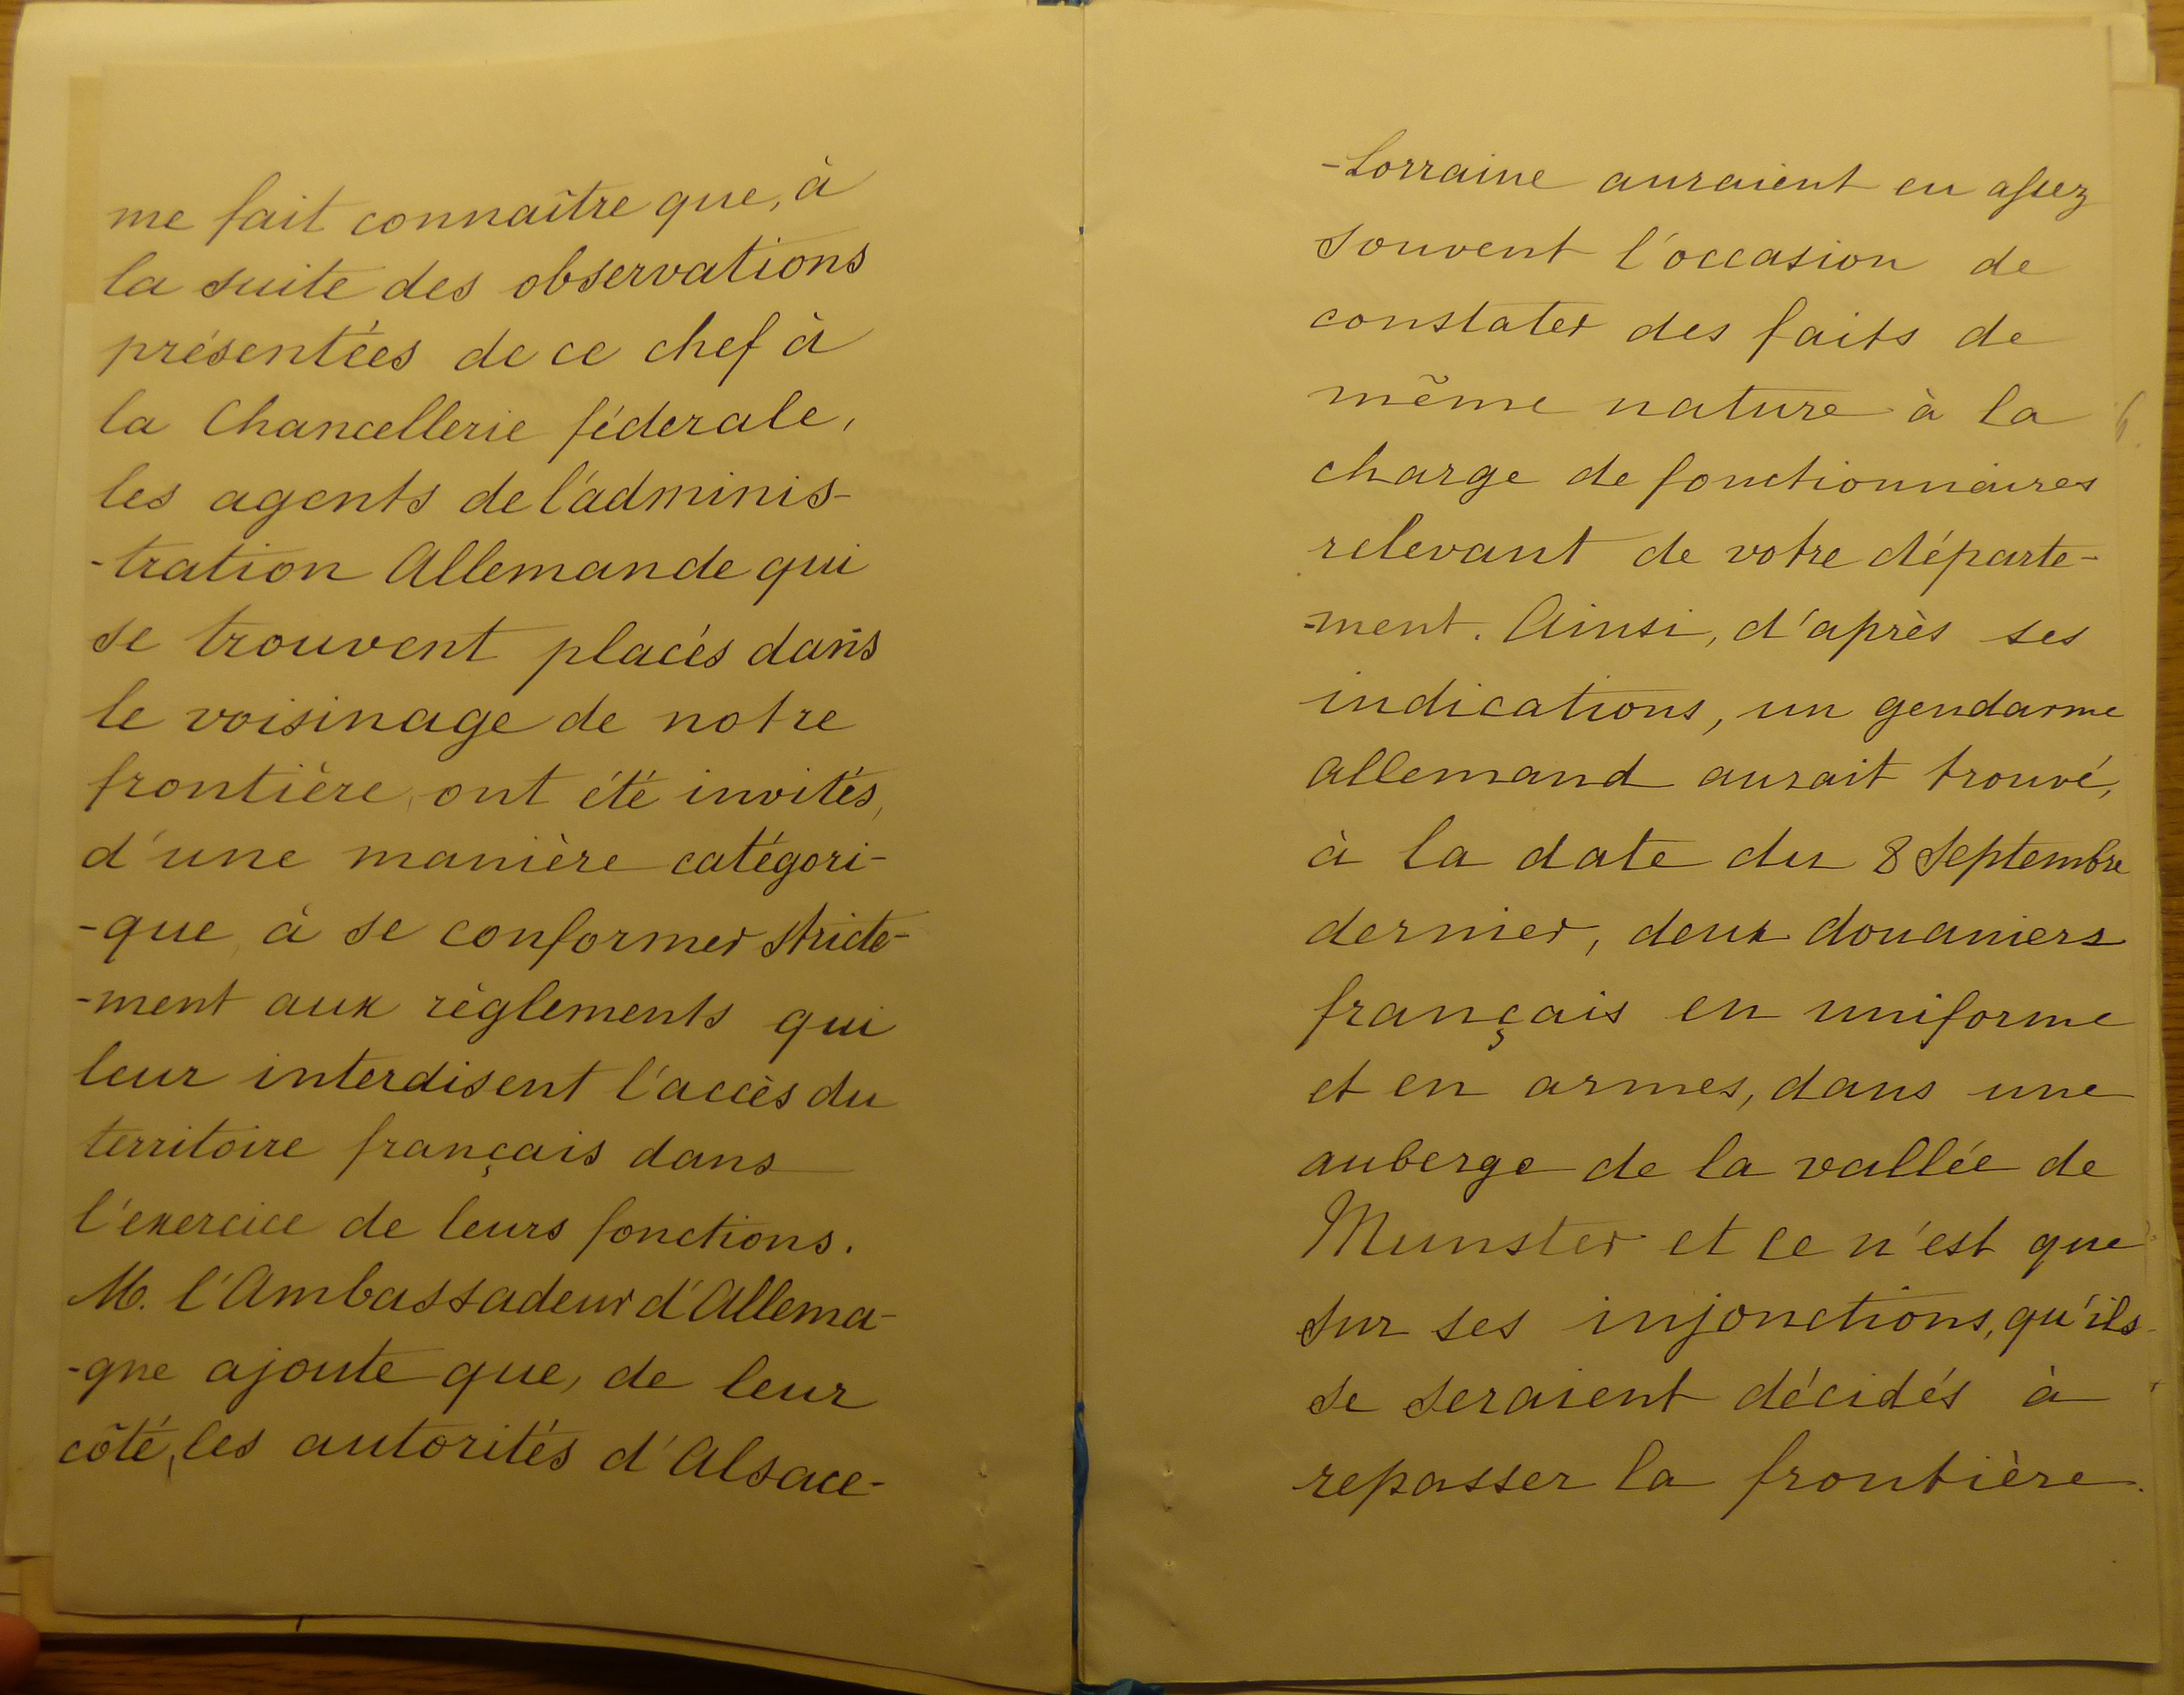 me fait connaître que, à
la suite des observations
présentées de ce chef à
la Chancellerie féderale,
les agents de l'adminis-
-tration Allemande qui
se trouvent placés dans
le voisinage de notre
frontière, ont été invités,
d'une manière catégori-
-que, à se conformer stricte-
-ment aux règlements qui
leur interdisent l'accès du
territoire français dans
l'exercice de leurs fonctions.
M. l'Ambassadeur d'Allema-
-gne ajoute que, de leur
côté, les autorités d'Alsace-
-Lorraine auraient eu assez
souvent l'occasion de
constater des faits de
même nature à la
charge de fonctionnaires
relevant de votre départe-
-ment. Ainsi, d'après ses
indications, un gendarme
allemand aurait trouvé,
à la date du 8 Septembre
dernier, deux douaniers
français en uniforme
et en armes, dans une
auberge de la vallée de
Munster et ce n'est que
sur ses injonctions, qu'ils
se seraient décidés à
repasser la frontière.